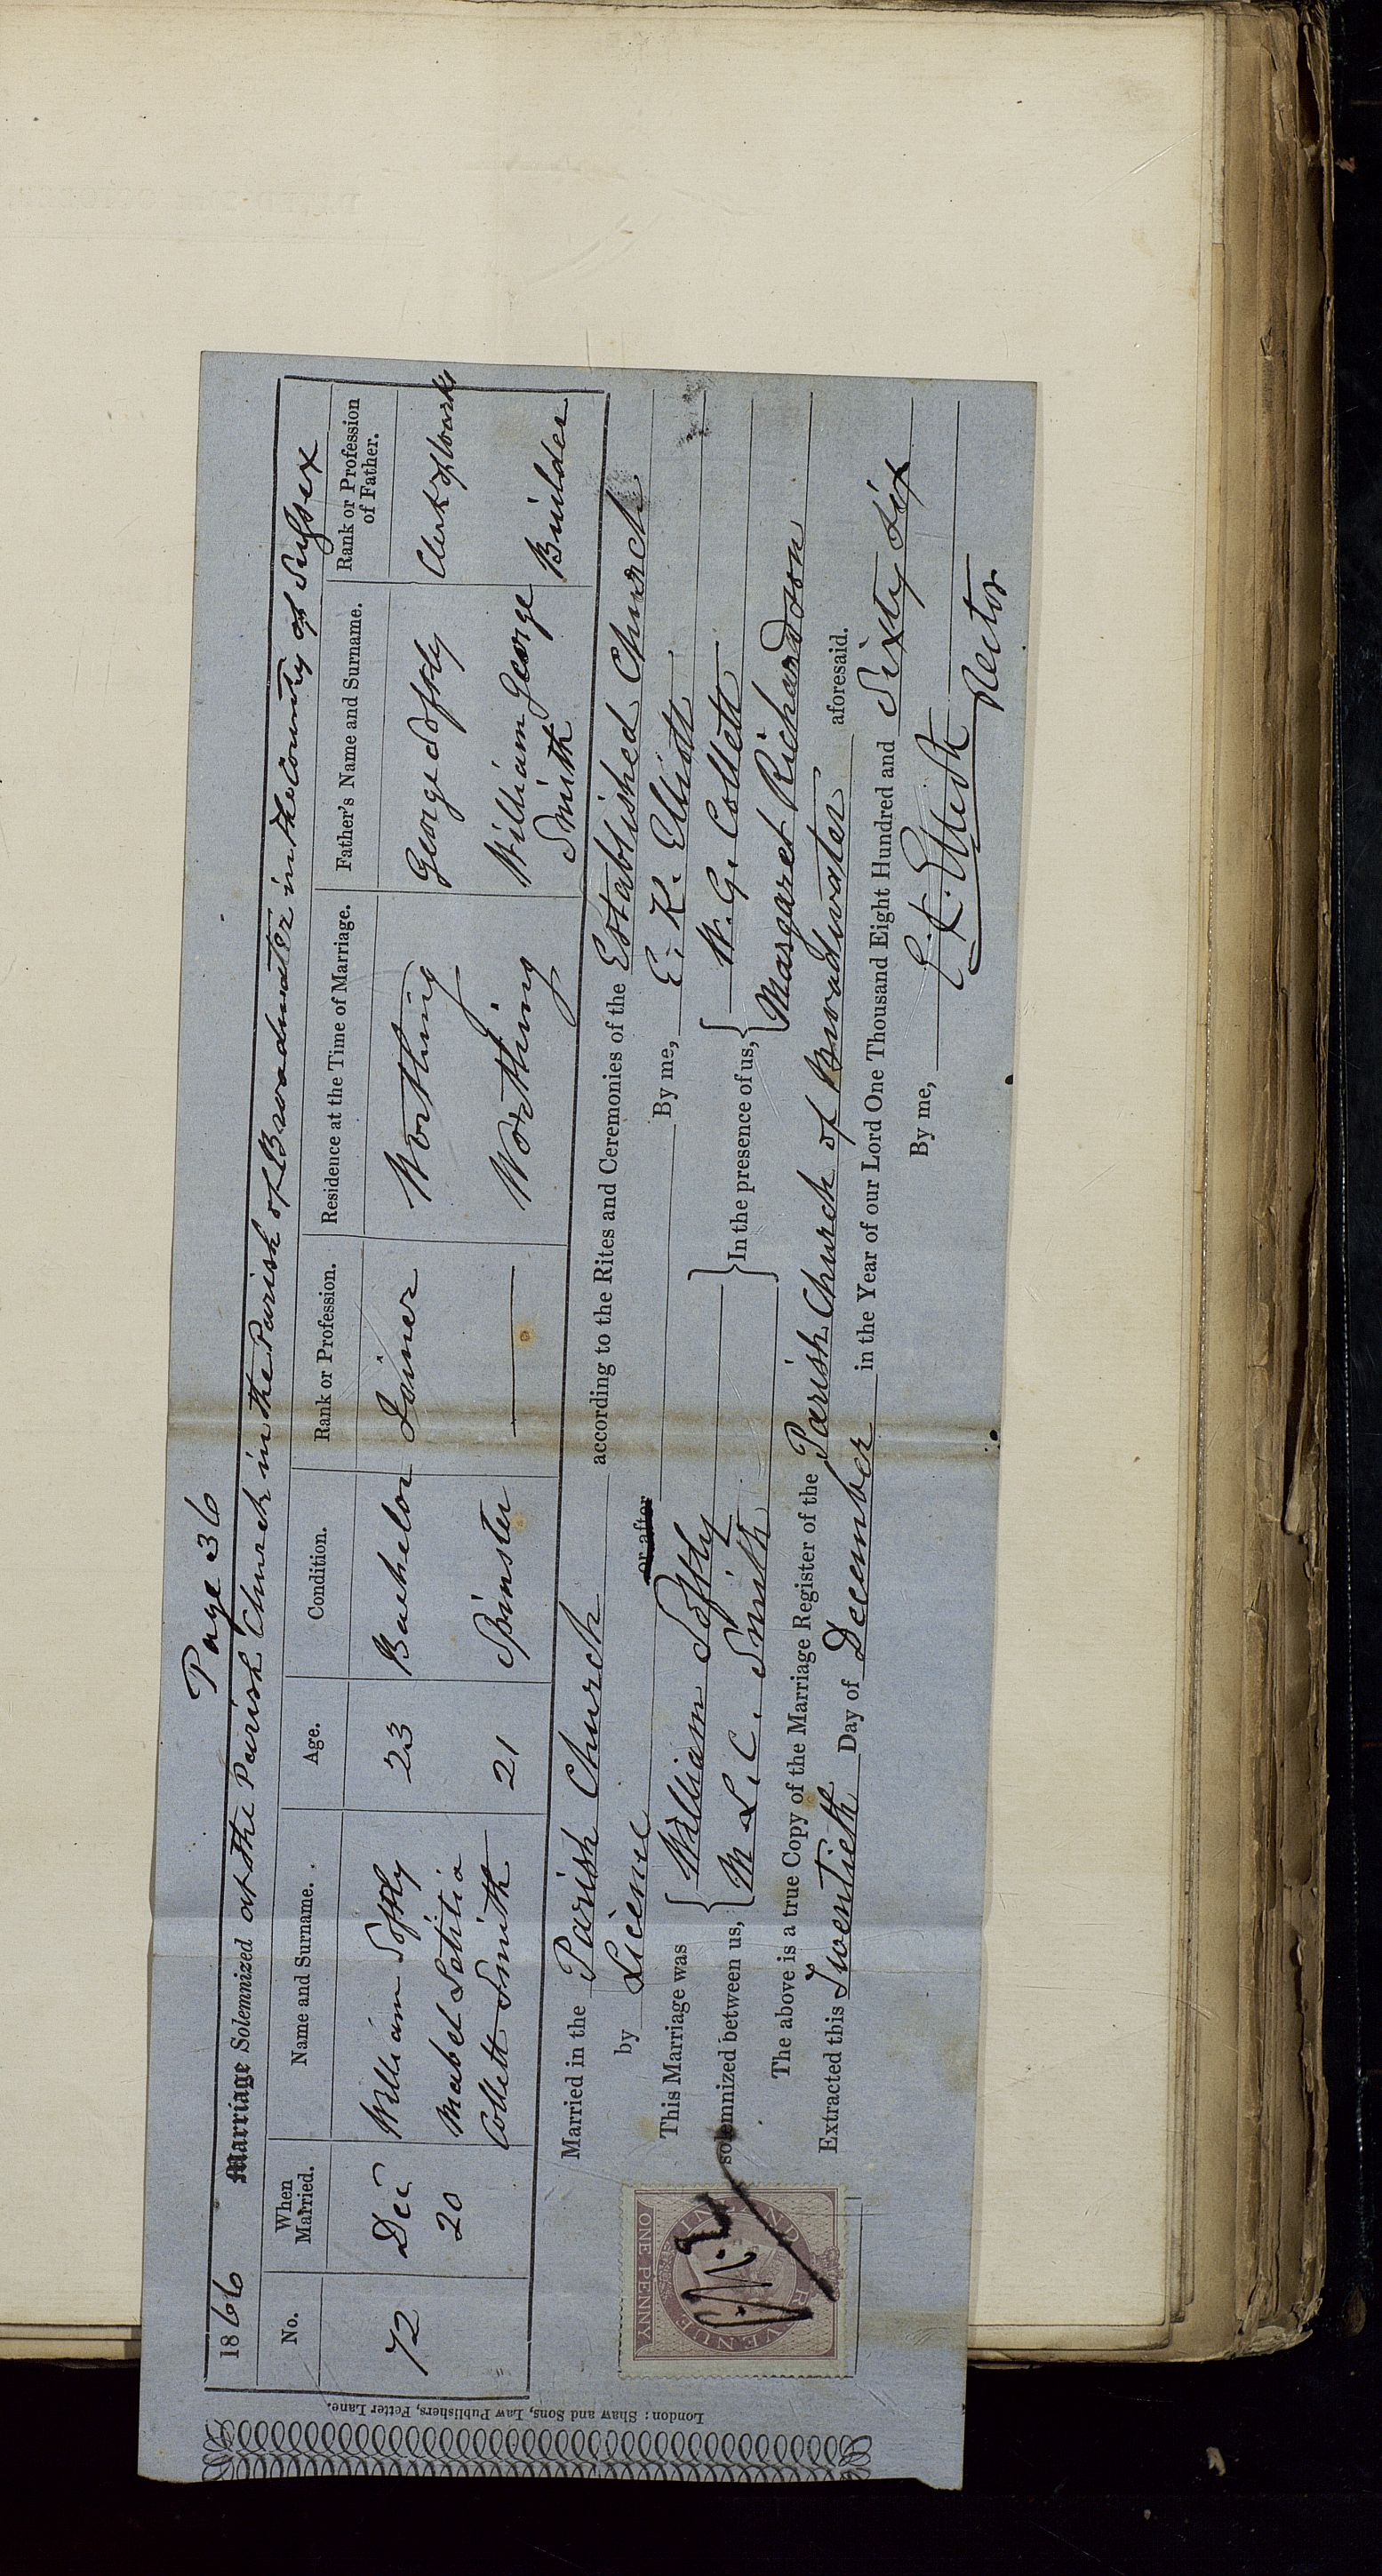 Page 36
1866 Marriage Solemnized at the Parish Church in the Parish of Broadwater in the County of Sussex
No. When Married. Name and Surname. Age. Condition. Rank or Profession. Residence at the Time of Marriage. Father's Name and Surname. Rank or Profession of Father.
72 Dec 20 William Softly 23 Bachelor Joiner Worthing George Softly Clerk of Works
Mabel Letitia Collett Smith 21 Spinster — Worthing William George Smith Builder
Married in the Parish Church according to the Rites and Ceremonies of the Established Church
by Licence or after By me, E. K. Elliott
This Marriage was solemnized between us, { William Softly
M. L. C. Smith } In the presence of us, { W. G. Collett
Margaret Richardson
The above is a true Copy of the Marriage Register of the Parish Church of Broadwater aforesaid.
Extracted this Twentieth Day of December in the Year of our Lord One Thousand Eight Hundred and Sixty Six
By me, E. K. Elliott
Rector
REVENUE
ONE PENNY
London: Shaw and Sons, Law Publishers, Fetter Lane.